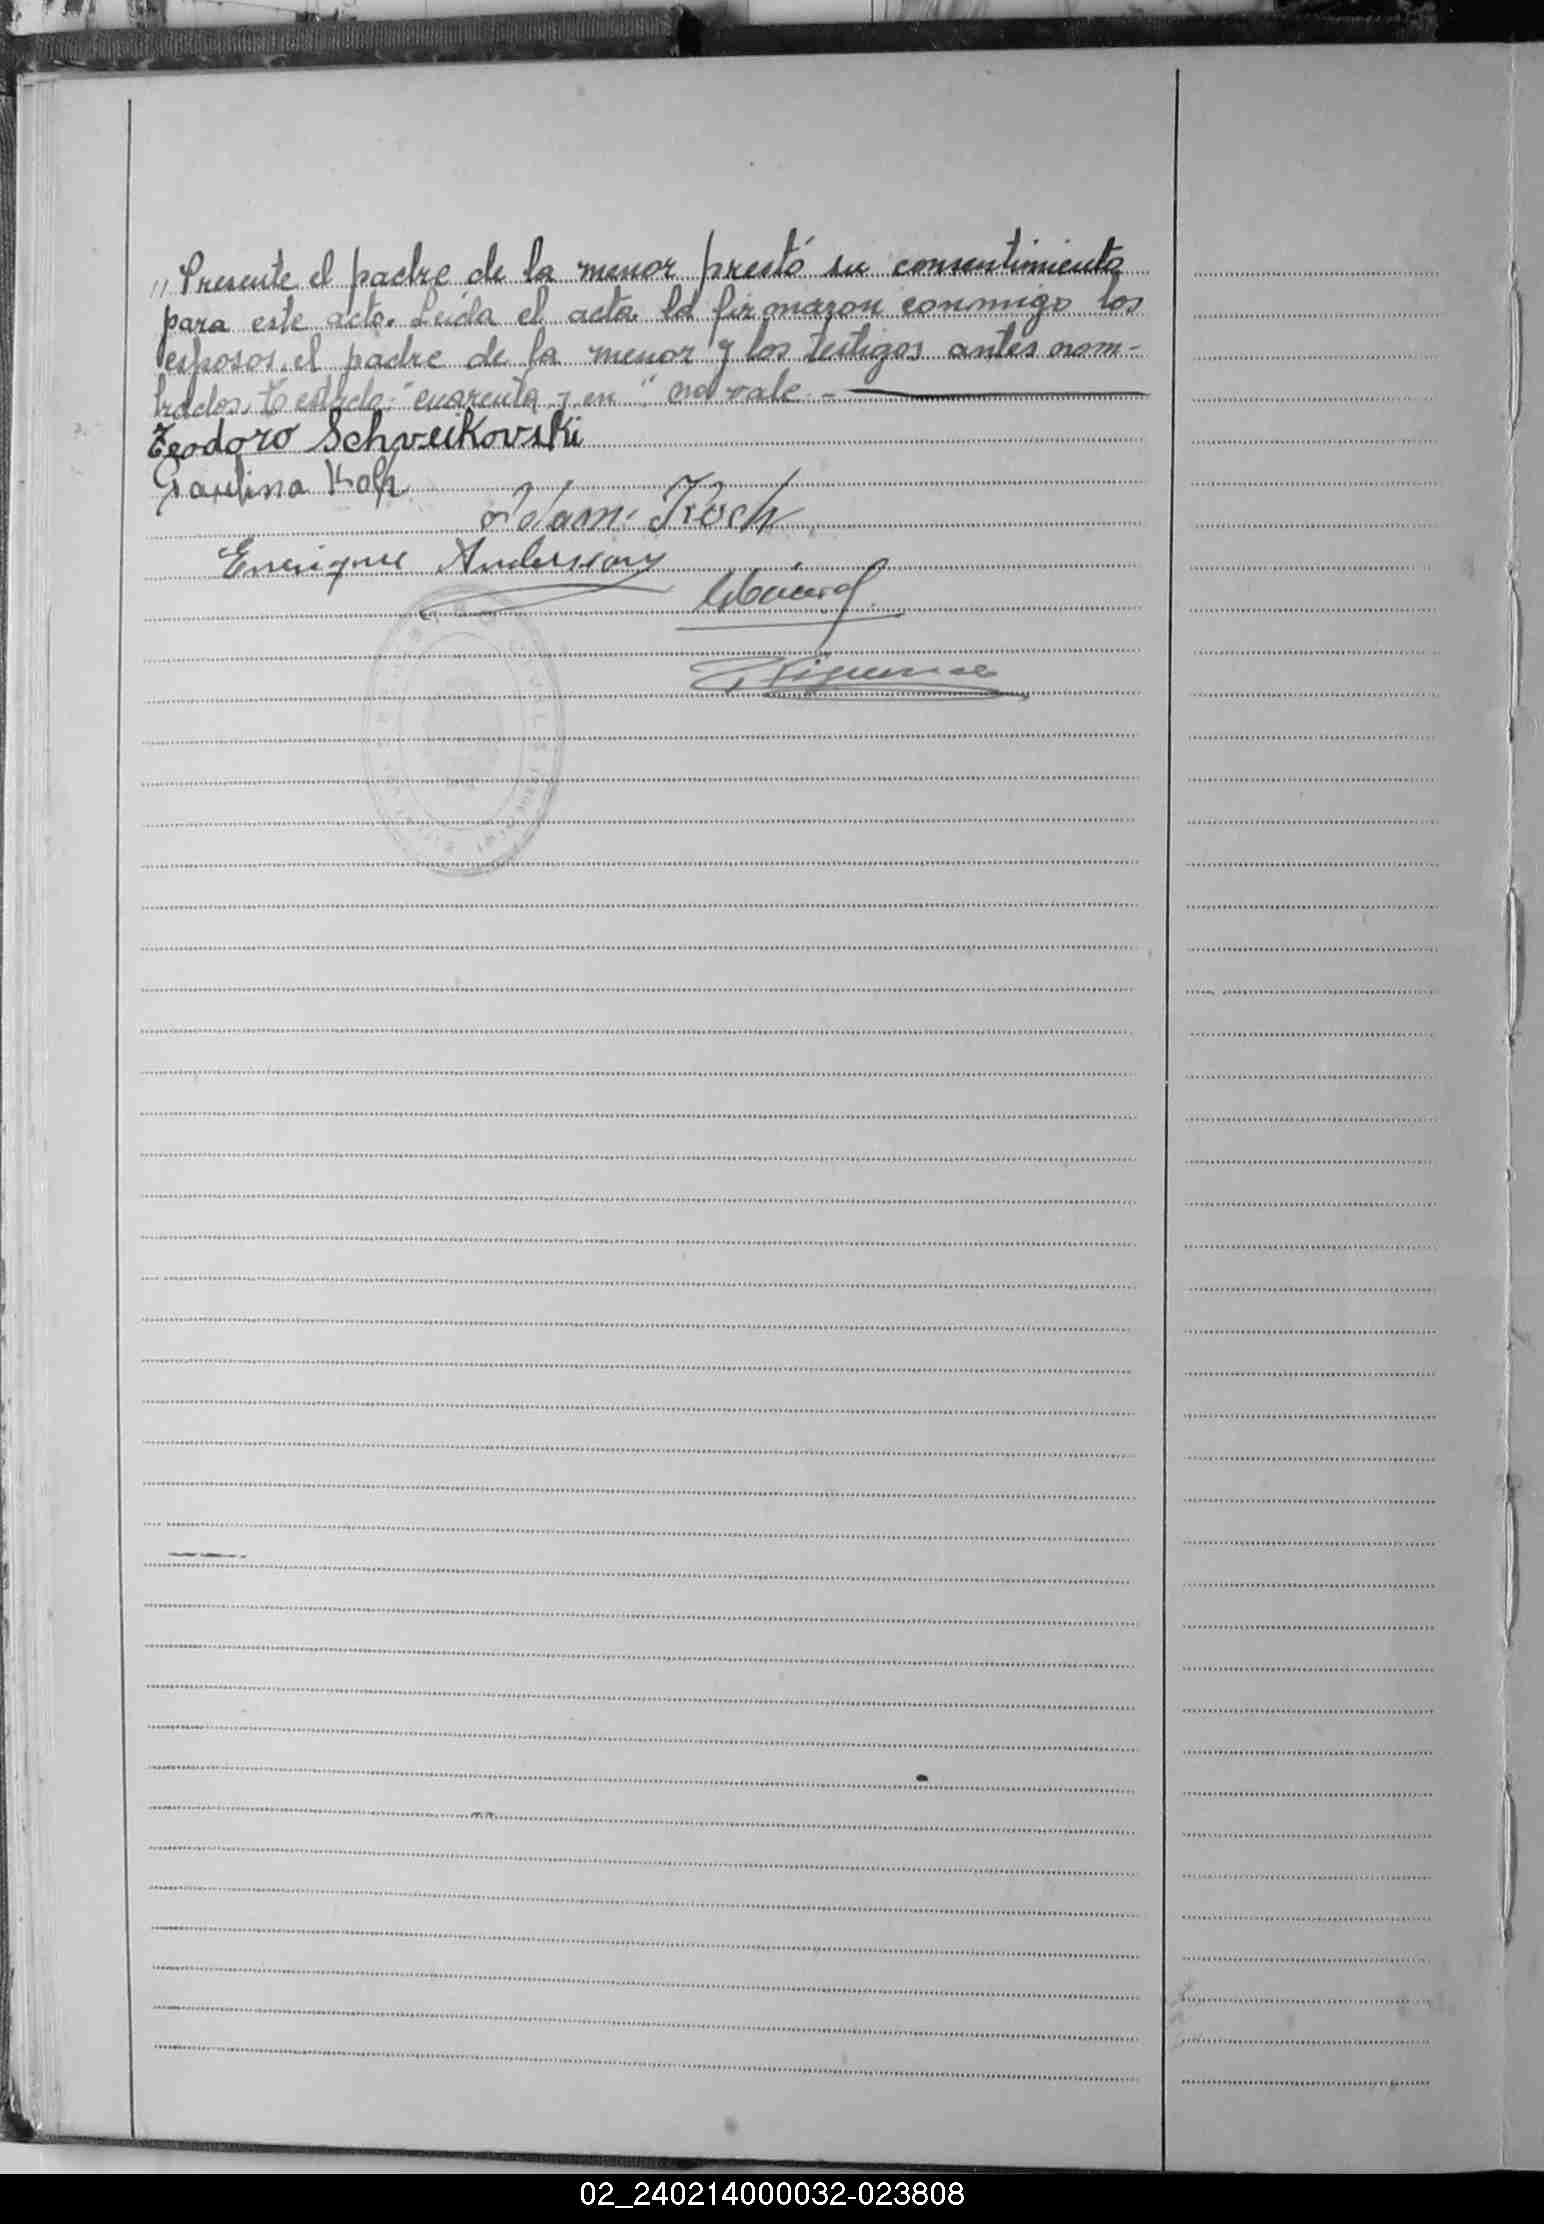 ,, Presente el padre de la menor prestó su consentimiento
para este acto. Leída el acta la firmaron conmigo los
esposos, el padre de la menor y los testigos antes nom-
brados. Testado: "cuarenta y en" no vale. -
Teodoro Schveikovski
Paulina Koch
Adam Koch
Enrique
02_240214000032-023808